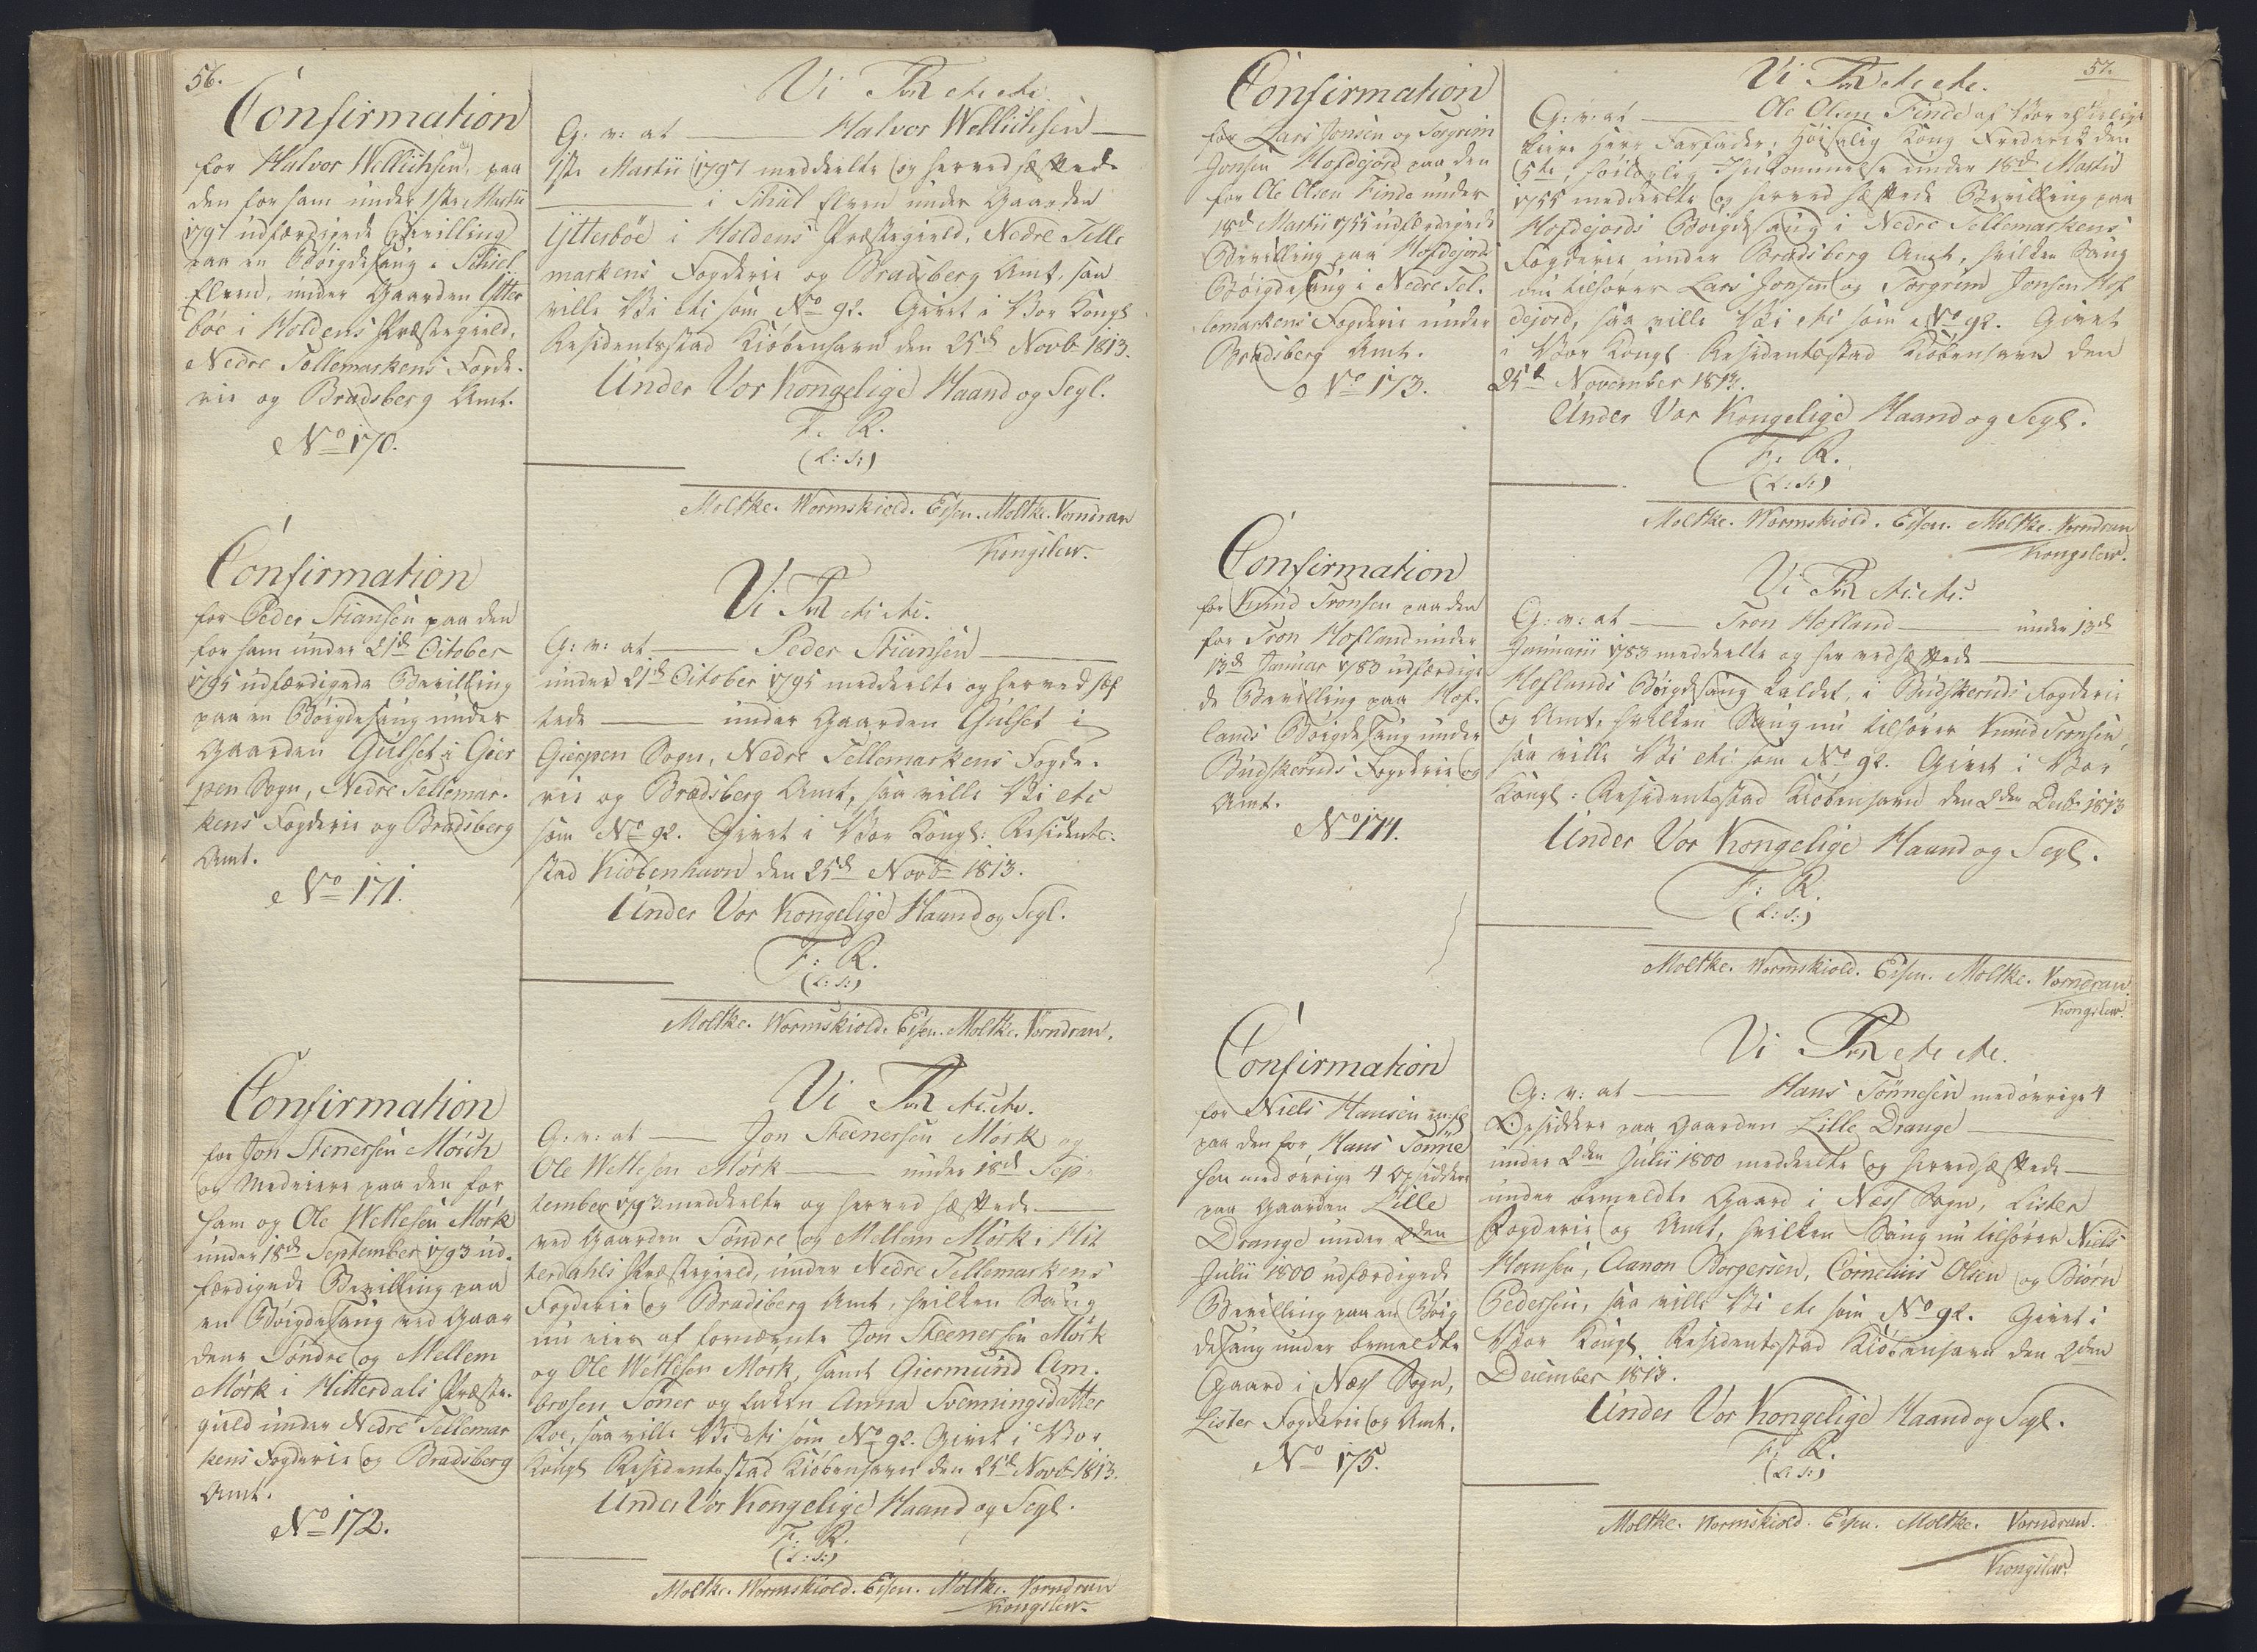 56.
Confirmation
for Halvor Wellichsen, paa
den for ham under 1ste Martii
1797 udfærdigede Bevilling
paa en Bøigdesaug i Schiel
Elven, under Gaarden Ytter
böe i Holdens Præstegield,
Nedre Tellemarkens Fogde-
rie og Bradsberg Amt.
No 170.
Vi Fr. R etc etc
G: v: at Halvor Wellichsen
1ste Martii 1797 meddeelte og herved hæftede
i Schiel Elven under Gaarden
Ytterböe i Holdens Præstegield, Nedre Telle
markens Fogderie og Bradsberg Amt, saa
ville Vi etc som No 92. Givet i Vor Kongl
Residentsstad Kiöbenhavn den 25de Novbr 1813.
Under Vor Kongelige Haand og Segl.
F. R.
(L: S:)
Moltke. Wormskiold. Essen. Moltke. Vorndran
Kongslew.
Confirmation
for Peder Stiansen paa den
for ham under 21de October
1795 udfærdigede Bevilling
paa en Bøigdesaug under
Gaarden Gulset i Gier
pen Sogn, Nedre Tellemar-
kens Fogderie og Bradsberg
Amt.
No 171.
Vi Fr. R etc etc.
G: v: at Peder Stiansen
under 21de October 1795 meddeelte og herved hæf
tede under Gaarden Gulset i
Gierpen Sogn, Nedre Tellemarkens Fogde-
rie og Bradsberg Amt, saa ville Vi etc
som No 92. Givet i Vor Kongl: Residents-
stad Kiöbenhavn den 25de Novbr 1813.
Under Vor Kongelige Haand og Segl.
F: R.
(L: S:)
Moltke. Wormskiold. Essen. Moltke. Vorndran.
Confirmation
for Jon Stenersen Mörch
og Medeiere paa den for
ham og Ole Wetlesen Mörk
under 18de September 1793 ud-
færdigede Bevilling paa
en Bøigdesaug ved Gaar
dene Söndre og Mellem
Mörk i Hitterdals Præste-
gield under Nedre Tellemar
kens Fogderie og Bradsberg
Amt.
No 172.
Vi Fr. R etc. etc.
G: v: at Jon Steenersen Mörk og
Ole Wetlesen Mörk under 18de Sep-
tember 1793 meddeelte og herved hæftede
ved Gaarden Söndre og Mellem Mörk i Hit
terdahls Præstegield, under Nedre Tellemarkens
Fogderie og Bradsberg Amt, hvilken Saug
nu eies af fornævnte Jon Steenersen Mörk
og Ole Wetlesen Mörk, samt Giermund Am-
brosen Soner og Enken Anna Svenningsdatter
Roe, saa ville Vi etc som No 92. Givet i Vor
Kongl Residentsstad Kiöbenhavn den 25de Novbr 1813.
Under Vor Kongelige Haand og Segl.
F. R.
(L: S:)
Moltke. Wormskiold. Essen. Moltke. Vorndran
Kongslew.
57.
Confirmation
for Lars Jonsen og Torgrim
Jonsen Hofdejord paa den
for Ole Olsen Finde under
18de Martii 1755 udfærdigede
Bevilling paa Hofdejords
Bøigdesaug i Nedre Tel-
lemarkens Fogderie under
Bradsberg Amt.
No 173.
Vi Fr. R etc etc.
G: v: at Ole Olsen Finde af Vor elskelige
kiere Herr Farfader, Höisalig Kong Frederik den
5te, höilovlig Ihukommelse under 18de Martii
1755 meddeelte og herved hæftede Bevilling paa
Hofdejords Bøigdesaug i Nedre Tellemarkens
Fogderie under Bradsberg Amt, hvilken Saug
nu tilhörer Lars Jonsen og Torgrim Jonsen Hof
dejord, saa ville Vi etc som No 92. Givet
i Vor Kongl Residentsstad Kiöbenhavn den
25de November 1813.
Under Vor Kongelige Haand og Segl.
F: R.
(L: S:)
Moltke. Wormskiold. Essen. Moltke. Vorndran
Kongslew.
Confirmation
for Knud Tronsen paa den
for Tron Hofland under
13de Januar 1783 udfærdige
de Bevilling paa Hof-
lands Bøigdesaug under
Budskeruds Fogderie og
Amt.
No 174.
Vi Fr. R etc. etc.
G: v: at Tron Hofland under 13de
Januarii 1783 meddeelte og herved hæftede
Hoflands Bøigdesaug kaldet, i Budskeruds Fogderie
og Amt, hvilken Saug nu tilhörer Knud Tronsen,
saa ville Vi etc. som No 92. Givet i Vor
Kongl: Residentsstad Kiöbenhavn den 2den Decbr 1813
Under Vor Kongelige Haand og Segl.
F: R.
(L: S:)
Moltke. Wormskiold. Essen. Moltke. Vorndran
Kongslew.
Confirmation
for Niels Hansen
paa den for Hans Tonne
sen med övrige 4 Opsiddere
paa Gaarden Lille
Drange under 2den
Julii 1800 udfærdigede
Bevilling paa en Bøig
desaug under bemeldte
Gaard i Næss Sogn,
Lister Fogderie og Amt.
No 175.
Vi Fr. R etc etc.
G: v: at Hans Tönnesen med övrige 4
Opsiddere paa Gaarden Lille Drange
under 2den Julii 1800 meddeelte og herved hæftede
under bemeldte Gaard i Næss Sogn, Lister
Fogderie og Amt, hvilken Saug nu tilhörer Niels
Hansen, Aanon Borgersen, Cornelius Olsen og Biörn
Pedersen, saa ville Vi etc som No 92. Givet i
Vor Kongl Residentsstad Kiöbenhavn den 2den
December 1813.
Under Vor Kongelige Haand og Segl.
F. R.
(L: S:)
Moltke. Wormskiold. Essen. Moltke. Vorndran.
Kongslew.